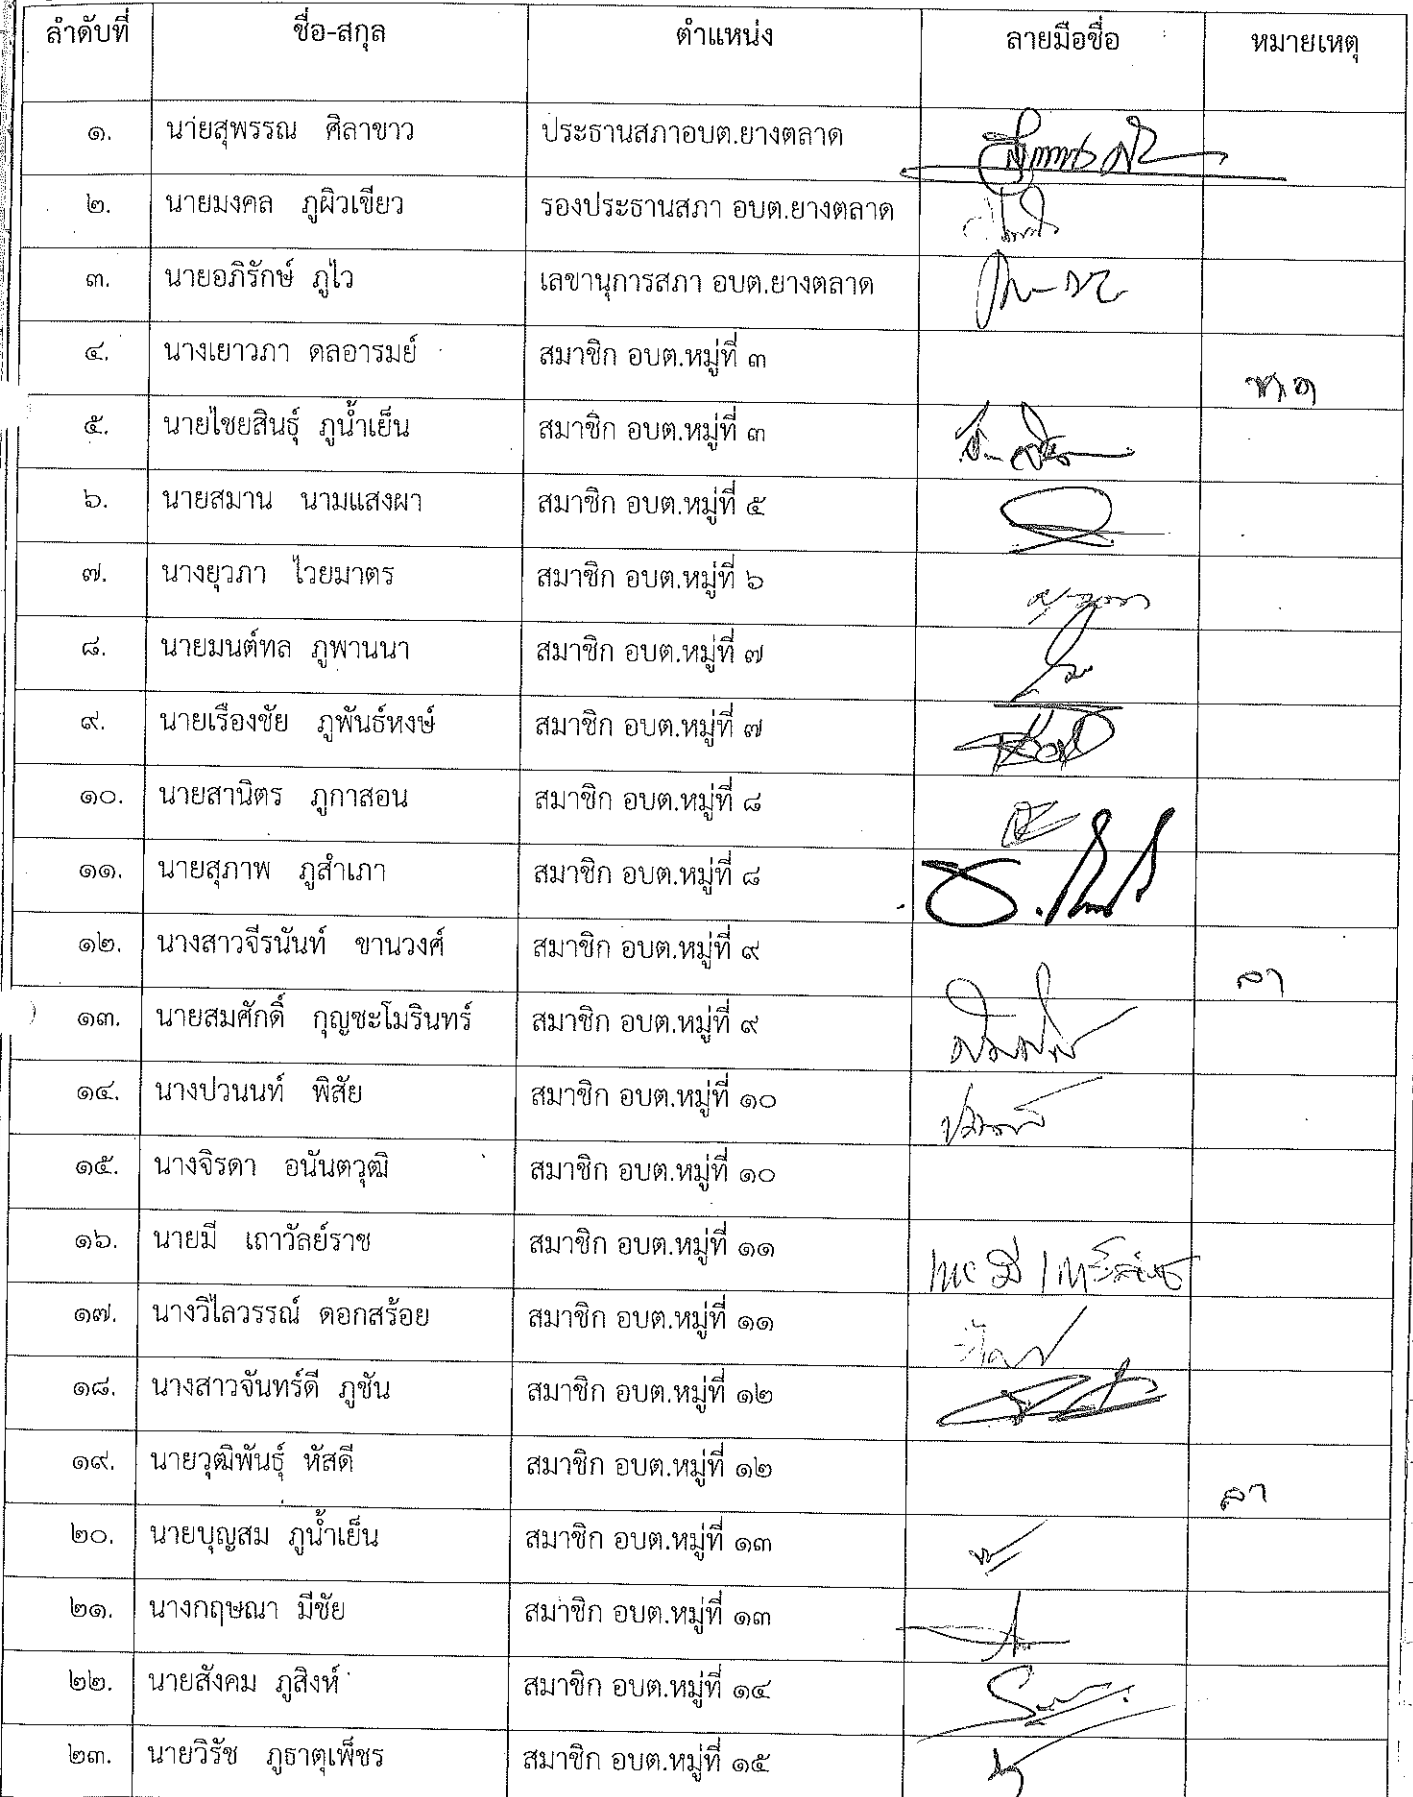 ลำดับที่ ชื่อ-สกุล ตำแหน่ง ลายมือชื่อ หมายเหตุ
๑. นายสุพรรณ ศิลาขาว ประธานสภาอบต.ยางตลาด
๒. นายมงคล ภูผิวเขียว รองประธานสภา อบต.ยางตลาด
๓. นายอภิรักษ์ ภูไว เลขานุการสภา อบต.ยางตลาด
๔. นางเยาวภา ดลอารมย์ สมาชิก อบต.หมู่ที่ ๓
๕. นายไชยสินธุ์ ภูน้ำเย็น สมาชิก อบต.หมู่ที่ ๓
๖. นายสมาน นามแสงผา สมาชิก อบต.หมู่ที่ ๕
๗. นางยุวภา ไวยมาตร สมาชิก อบต.หมู่ที่ ๖
๘. นายมนต์ทล ภูพานนา สมาชิก อบต.หมู่ที่ ๗
๙. นายเรืองชัย ภูพันธ์หงษ์ สมาชิก อบต.หมู่ที่ ๗
๑๐. นายสานิตร ภูกาสอน สมาชิก อบต.หมู่ที่ ๘
๑๑. นายสุภาพ ภูสำเภา สมาชิก อบต.หมู่ที่ ๘
๑๒. นางสาวจีรนันท์ ขานวงศ์ สมาชิก อบต.หมู่ที่ ๙ ลา
๑๓. นายสมศักดิ์ กุญชะโมรินทร์ สมาชิก อบต.หมู่ที่ ๙
๑๔. นางปวนนท์ พิสัย สมาชิก อบต.หมู่ที่ ๑๐
๑๕. นางจิรดา อนันตวุฒิ สมาชิก อบต.หมู่ที่ ๑๐
๑๖. นายมี เถาวัลย์ราช สมาชิก อบต.หมู่ที่ ๑๑
๑๗. นางวิไลวรรณ์ ดอกสร้อย สมาชิก อบต.หมู่ที่ ๑๑
๑๘. นางสาวจันทร์ดี ภูชัน สมาชิก อบต.หมู่ที่ ๑๒
๑๙. นายวุฒิพันธุ์ หัสดี สมาชิก อบต.หมู่ที่ ๑๒ ลา
๒๐. นายบุญสม ภูน้ำเย็น สมาชิก อบต.หมู่ที่ ๑๓
๒๑. นางกฤษณา มีชัย สมาชิก อบต.หมู่ที่ ๑๓
๒๒. นายสังคม ภูสิงห์ สมาชิก อบต.หมู่ที่ ๑๔
๒๓. นายวิรัช ภูธาตุเพ็ชร สมาชิก อบต.หมู่ที่ ๑๕